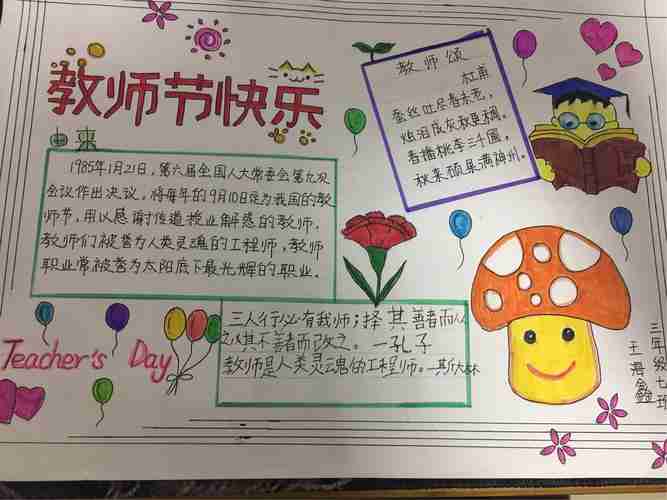 教师节快乐
由来
1985年1月21日，第六届全国人大常委会第九次
会议作出决议，将每年的9月10日定为我国的教
师节，用以感谢传道授业解惑的教师。
教师们被誉为人类灵魂的工程师，教师
职业常被誉为太阳底下最光辉的职业。
教师颂
杜甫
蚕丝吐尽春未老，
烛泪成灰秋更稠。
春播桃李三千圃，
秋来硕果满神州。
三人行必有我师；择其善者而从
之，其不善者而改之。一孔子
教师是人类灵魂的工程师。一斯大林
Teacher's Day
三年级七班
王海鑫